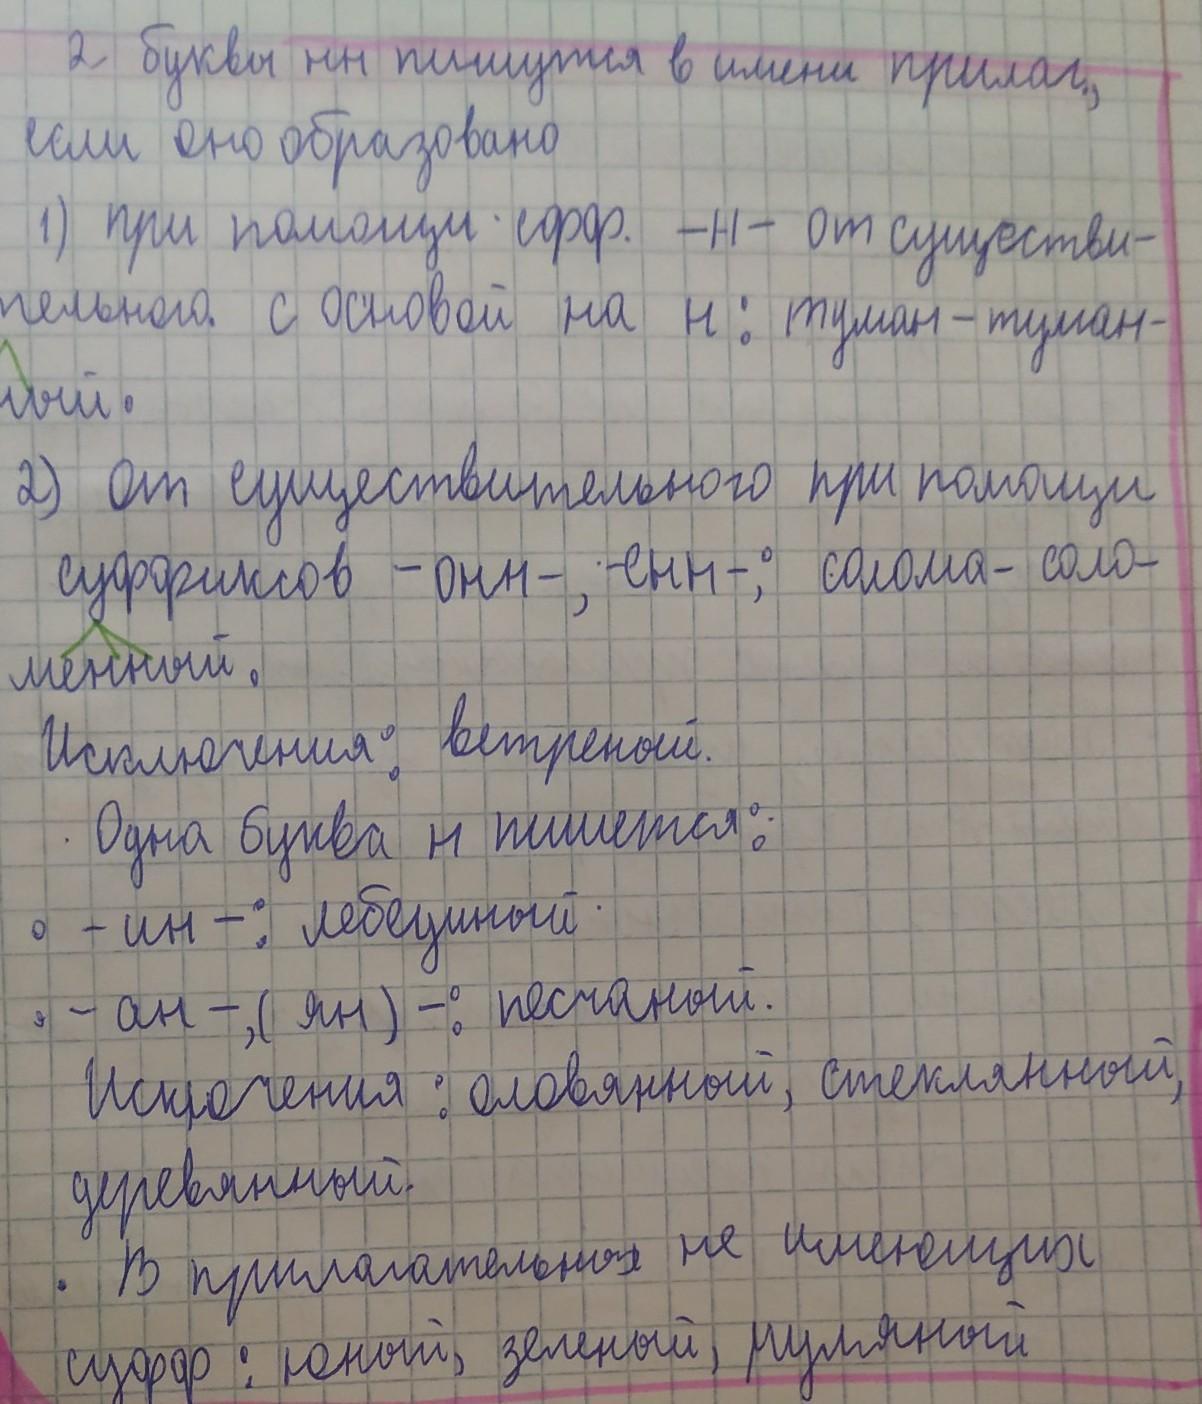 2 буквы нн пишутся в имени прилаг.,
если оно образовано
1) при помощи суфф. -н- от существи-
тельного с основой на н: туман - туман-
ный.
2) От существительного при помощи
суффиксов -онн-, -енн-: солома - соло-
менный.
Исключения: ветреный.
Одна буква н пишется:
• -ин-: лебединый
• -ан-, (ян) -: песчаный.
Исключения: оловянный, стеклянный,
деревянный.
• В прилагательных не имеющих
суфф: юный, зеленый, румяный